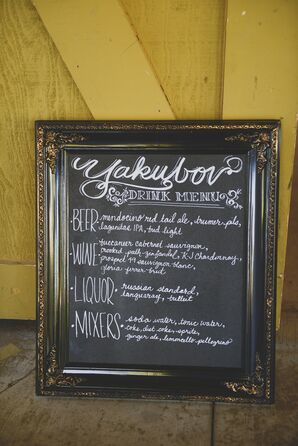 Yakubov
DRINK MENU
BEER • mendocino red tail ale, trumer pils,
lagunitas IPA, bud light
WINE • buccaneer cabernet sauvignon,
crooked path-zinfandel, KJ Chardonnay,
prospect 99 sauvignon blanc,
gloria ferrer brut
• LIQUOR • russian standard,
tanqueray, bulleit
MIXERS • soda water, tonic water,
coke, diet coke, sprite,
ginger ale, limoncello, pellegrino